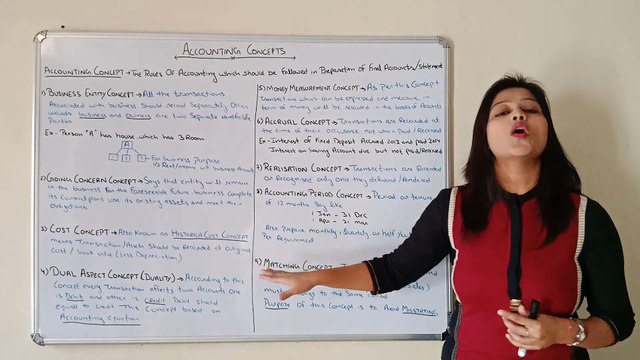 ACCOUNTING CONCEPTS
ACCOUNTING CONCEPT → The Rules Of Accounting which should be followed in Preparation of Final Accounts/Statement
1) BUSINESS ENTITY CONCEPT → All the transactions
Associated with business should record Separately. Other
words business and owners are two Separate entities
Parties
Ex - Person "A" has house which has 3 Room.
A
For business purpose
2) GOING CONCERN CONCEPT → Says that entity will remain
in the business For the Foreseeable Future, business complete
its current plans use its existing assets and meet their
obligations.
3) COST CONCEPT → Also known as HISTORICAL COST CONCEPT
means Transaction/Assets should be Recorded at original
cost / book value (less Depreciation)
4) DUAL ASPECT CONCEPT (DUALITY) → According to this
Concept every Transaction affects two Accounts One
is Debit and other is Credit Debit should
equal to credit This Concept based on
Accounting equation
5) MONEY MEASUREMENT CONCEPT → As per this Concept
Transactions which can expressed and measure in
term of money will be recorded in the books of Accounts
6) ACCRUAL CONCEPT → Transactions are Recorded at
the time of their Occurrence not when paid/Received
Ex - Interest of Fixed Deposit Accrued 2013 and paid 2014
Interest on Saving Account due but not paid/Received
7) REALISATION CONCEPT → Transactions are Recorded
or Recognised only once they delivered/Rendered
8) ACCOUNTING PERIOD CONCEPT → Period or tenure of
of 12 months
1 Jan - 31 Dec
1 Apr - 31 mar
Also Prepare monthly, Quarterly or half Yearly
Per Requirement
9) MATCHING CONCEPT
to the Same
Purpose of this Concept is to Avoid MISSTATING